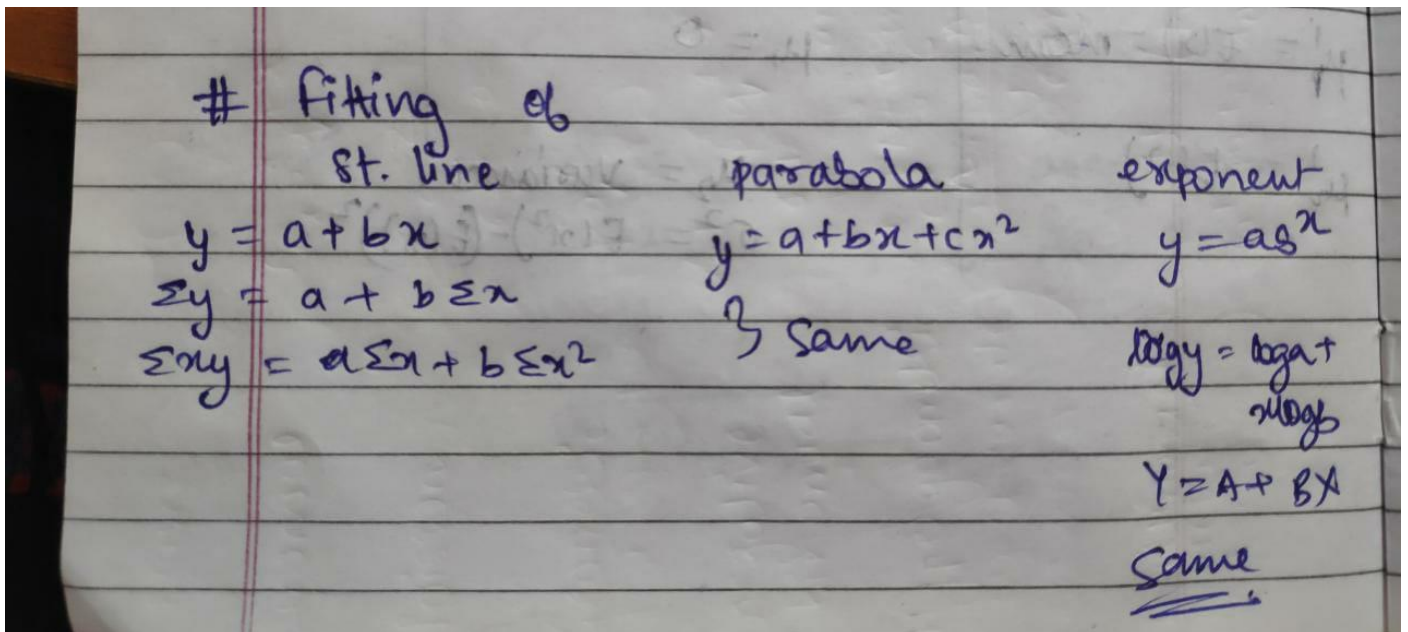 # Fitting of
st. line
y = a + bx
Σy = a + b Σx
Σxy = aΣx + b Σx²
parabola
y = a + bx + cx²
} Same
exponent
y = abˣ
logy = loga +
xlogb
Y = A + BX
Same